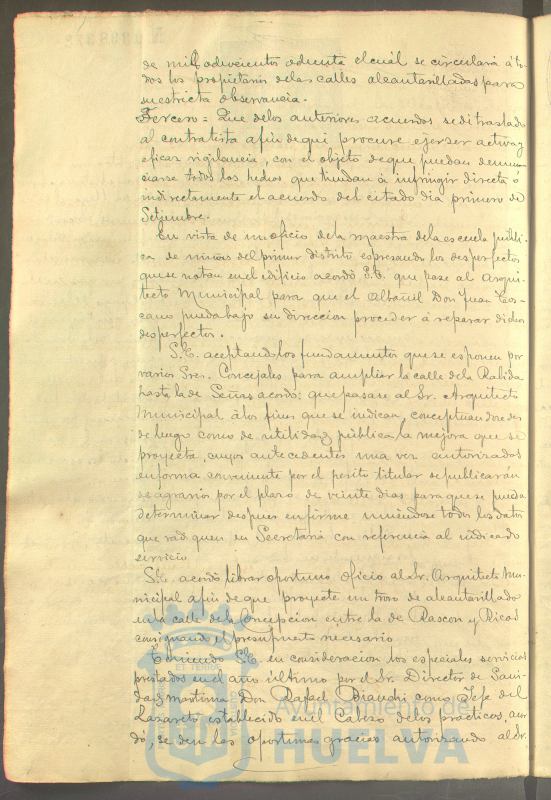 de mil ochocientos ochenta el cual se circulará á to-
dos los propietarios delas calles alcantarilladas para
su estricta observancia.
Tercero = Que delos anteriores acuerdos se di traslado
al contratista afin de qui procure ejerser activa y
eficas vigilancia, con el objeto de que puedan denun-
ciarse todos los hechos que tiendan á infringir directa ó
indirectamente el acuerdo del citado dia primero de
Setiembre.
En vista de un oficio dela maestra dela escuela públi-
ca de niñas del primer distrito espresando los desperfectos
que se notan en el edificio acordó S.E. que pase al Arqui-
tecto Municipal para que el albañil Don Juan Tos-
cano pueda bajo su direccion proceder á reparar dichos
desperfectos.
S.E. aceptando los fundamentos que se esponen por
varios Sres. Concejales para ampliar la calle dela Rabida
hasta la de Señas acordó: que pasase al Sr. Arquitecto
Municipal á los fines que se indican, conceptuandose des
de luego como de utilidad pública la mejora que se
proyecta, cuyos antecedentes una vez autorizados
en forma conveniente por el perito titular se publicarán
de agrarios por el plazo de veinte dias para que se pueda
determinar despues en firme uniendose todos los datos
que en Secretaria con referencia al indicado
servicio.
S.E. acordó librar oportuno oficio al Sr. Arquitecto Mu-
nicipal afin de que proyecte un trozo de alcantarillado
en la calle dela Concepcion entre la de Rascon y Ricos
consignando el presupuesto necesario
Teniendo S.E. en consideracion los especiales servicios
prestados en el año último por el Sr. Director de Sani-
dad maritima Don Rafael Bianchi como Jefe del
Lazareto establecido en el Cabezo delos practicos, acor
dó, se den las oportunas gracias autorizando al Sr.
Ayuntamiento de
HUELVA